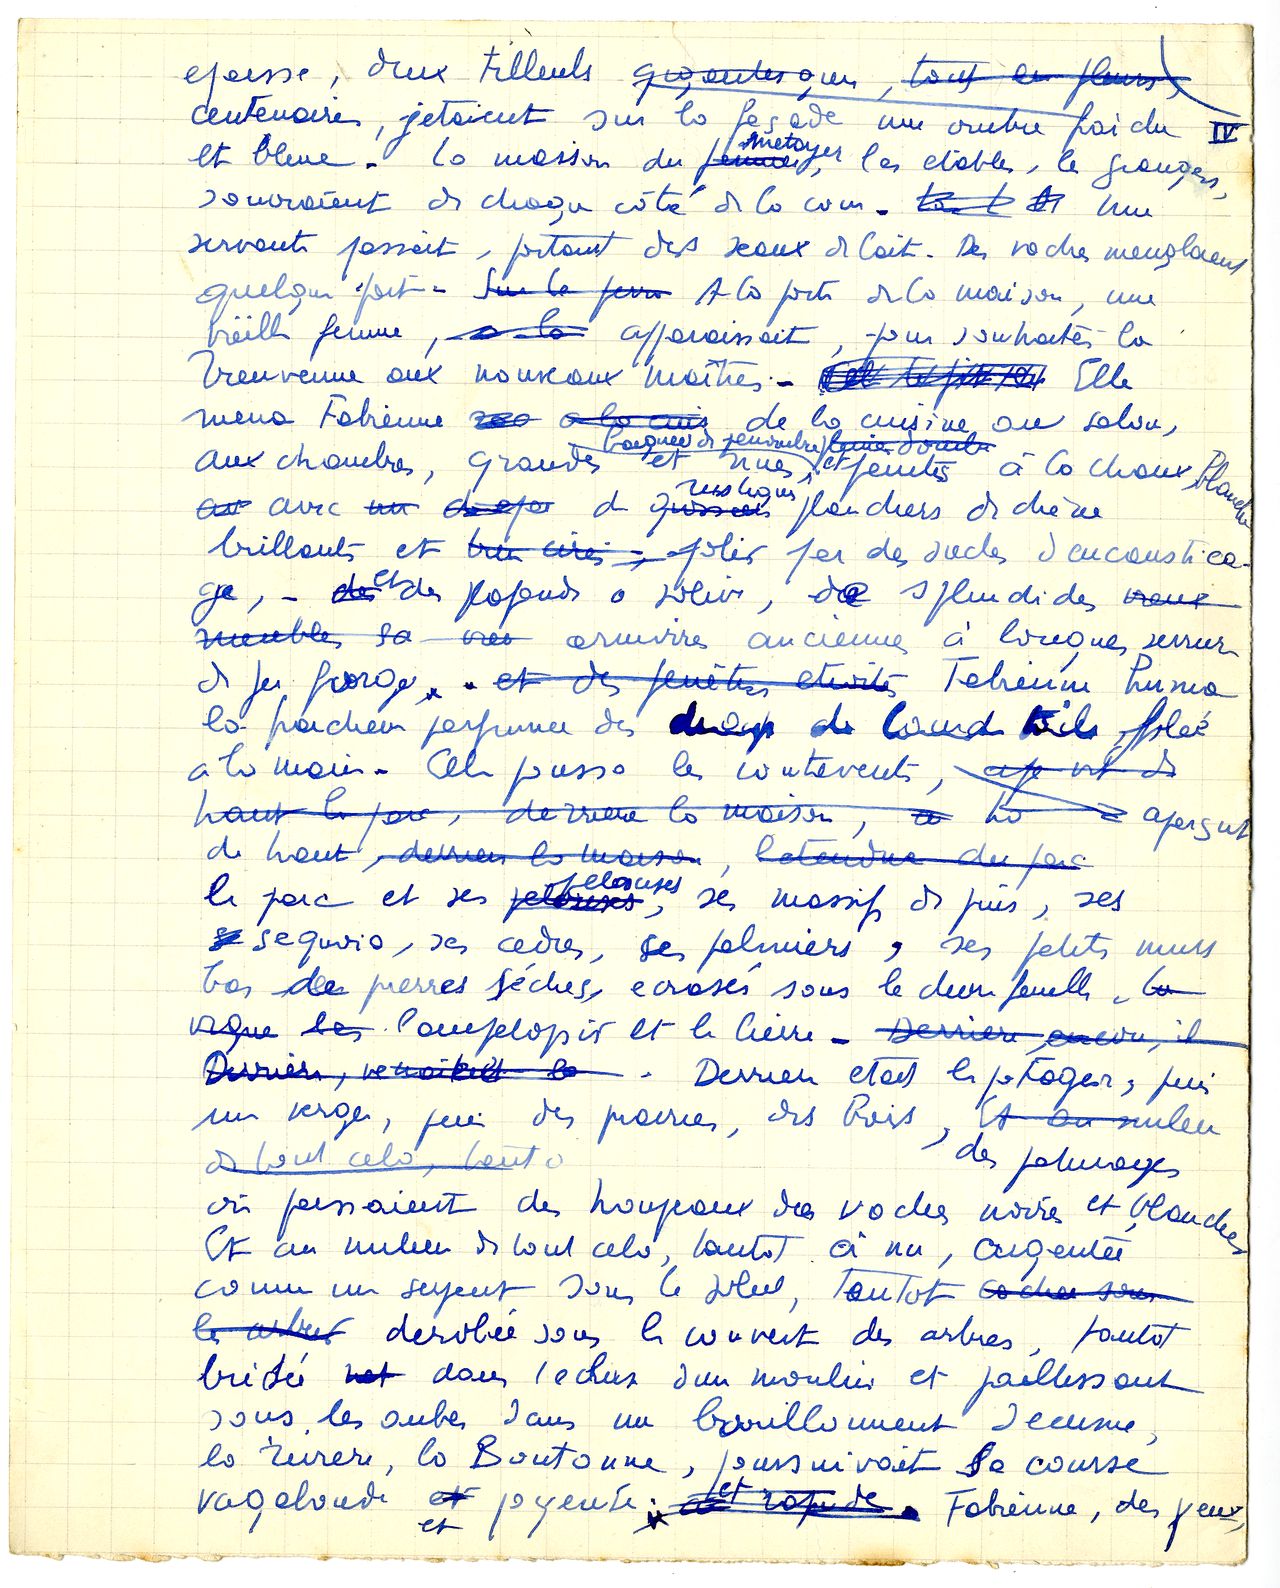 épaisse, deux tilleuls gigantesques, tout en fleurs,
centenaires, jetaient sur la façade une ombre froide IV
et bleue. La maison du métayer, les étables, les granges,
s'ouvraient de chaque côté de la cour. Une
servante passait, portant des seaux de lait. Des vaches meuglaient
quelque part. Sur le A la porte de la maison, une
vieille femme, a la apparaissait, pour souhaiter la
bienvenue aux nouveaux maîtres. Elle
mena Fabienne a la cuis de la cuisine au salon,
baignées de pénombre
aux chambres, grandes et nues, et peintes à la chaux blanche
rustiques
avec un de planchers de chêne
brillants et bien cirés, polis par des siècles d'encaustica-
ge, et des plafonds a solives, de splendides vieux
meubles armoires anciennes à longues serrures
de fer forgé. et des fenêtres étroites Fabienne huma
la fraicheur parfumée des draps de lourde toile filée
a la main. Elle poussa les contrevents,
haut le parc, derrière la maison, aperçut
de haut, derrière la maison, l'étendue du parc
pelouses
le parc et ses pelouses, ses massifs de pins, ses
sequoia, ses cèdres, ses palmiers, ses petits murs
bas de pierres sèches, écrasés sous le chèvrefeuille, la
vigne les l'ampélopsis et le lierre. Derrière encore, il
Derrière, venait la. Derrière était le potager, puis
un verger, puis des prairies, des bois, Et au milieu
de tout cela, tanto des paturages
où paissaient des troupeaux des vaches noires et blanches
Et au milieu de tout cela, tantôt à nu, argentée
comme un serpent sous le soleil, tantôt cachée sous
les arbres dérobée sous le couvert des arbres, tantôt
bridée dans l'écluse d'un moulin et jaillissant
sous les aubes dans un bouillonnement d'écume,
la rivière, la Boutonne, poursuivait sa course
vagabonde et joyeuse. et rapide. Fabienne, des yeux,
et